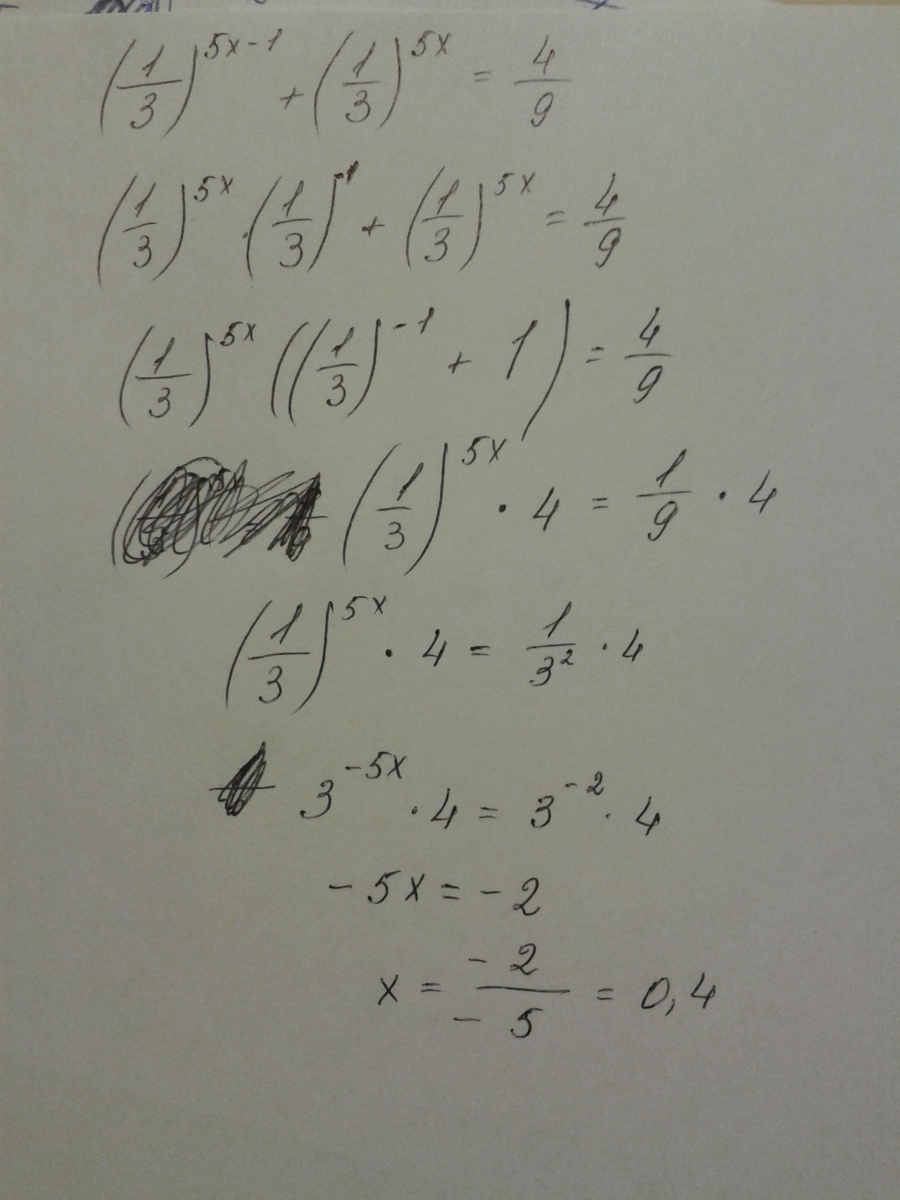 (1/3)^(5x-1) + (1/3)^(5x) = 4/9
(1/3)^(5x) · (1/3)^(-1) + (1/3)^(5x) = 4/9
(1/3)^(5x) ((1/3)^(-1) + 1) = 4/9
(1/3)^(5x) · 4 = 1/9 · 4
(1/3)^(5x) · 4 = 1/3² · 4
3^(-5x) · 4 = 3^(-2) · 4
-5x = -2
x = -2/-5 = 0,4